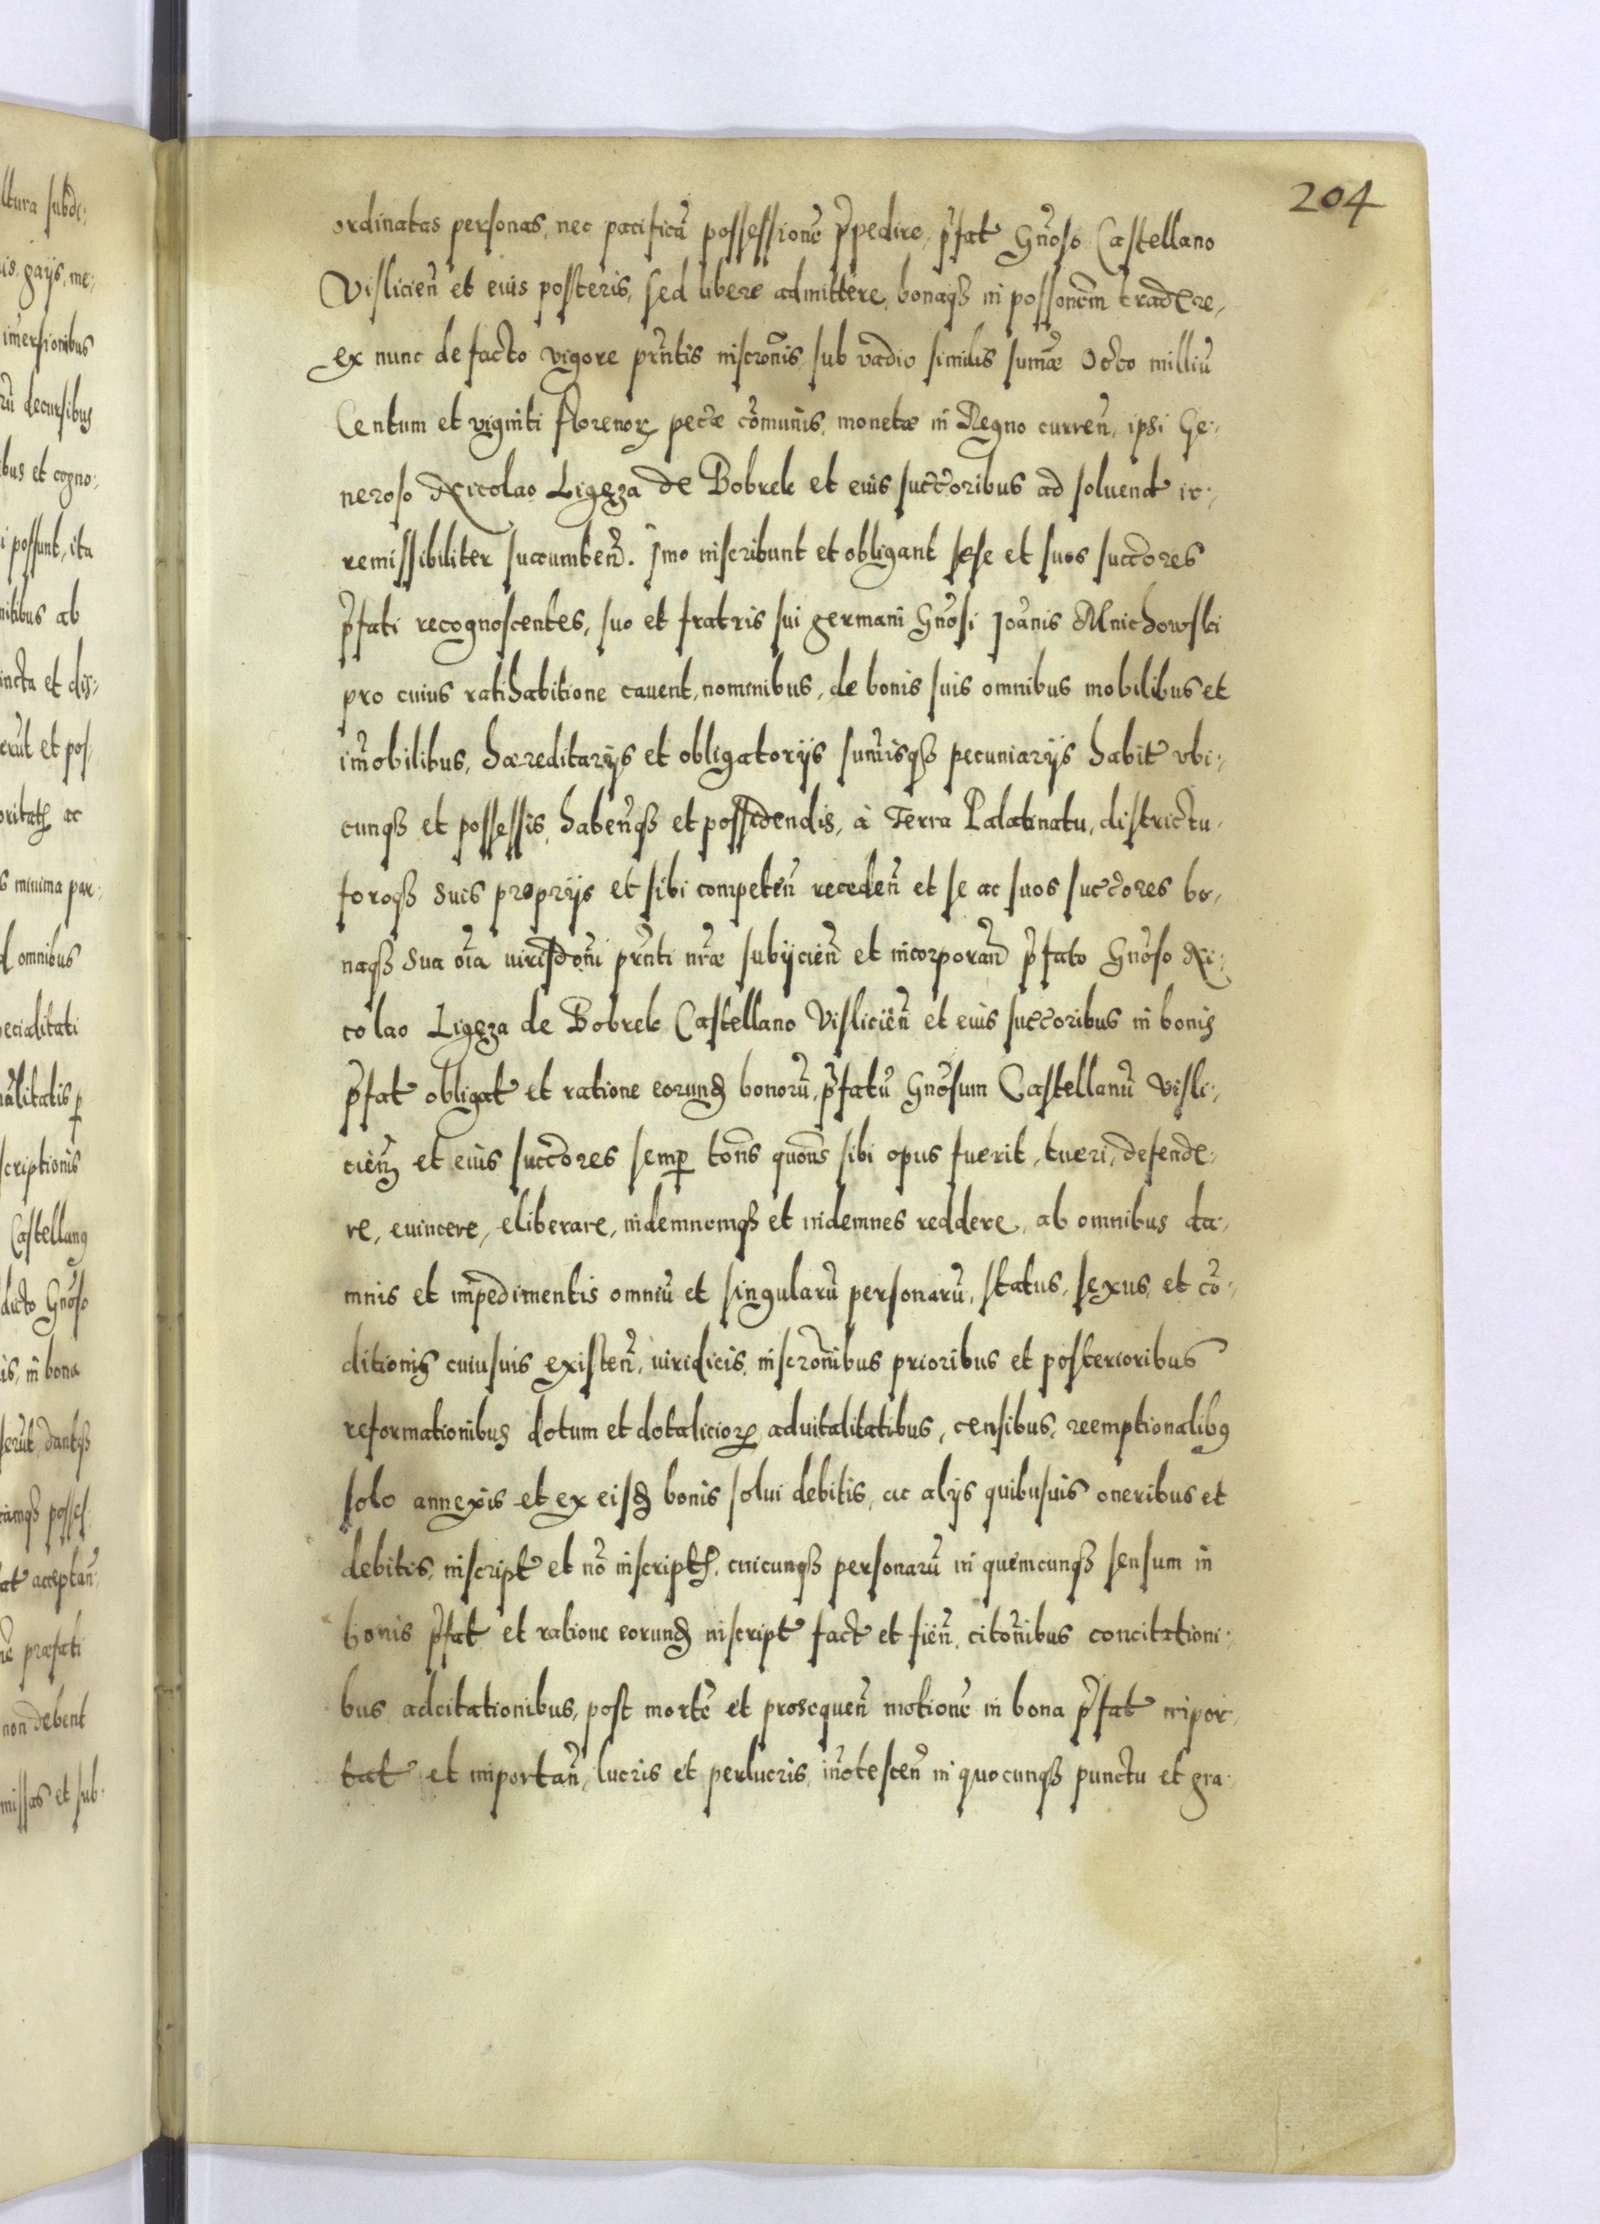 204
ordinatas personas, nec pacificã possessionẽ p̃pedire, p̃fat Gñoso Castellano
Vislicieñ et eius posteris, sed libere admittere, bonaqȝ in possonẽm tradere,
ex nunc de facto vigore pr̃ntis inscrõnis, sub vadio similis sumæ Octo milliũ
Centum et viginti florenoꝝ pecæ cõmunis, monetæ in Regno curreñ, ipsi Ge-
neroso Nicolao Ligęza de Bobrek et eius succ̃oribus ad soluend ir-
remissibiliter succumbeñ. Imo inscribunt et obligant sese et suos succ̃ores
p̃fati recognoscentes, suo et fratris sui germani Gñosi Ioãnis Mnichowski
pro cuius ratihabitione cauent, nominibus, de bonis suis omnibus mobilibus et
im̃obilibus, hæreditarijs et obligatorijs sum̃isqȝ pecuniarijs habit vbi-
cunqȝ et possessis, habeñqȝ et possidendis, à Terra Palatinatu, districtu,
foroqȝ suis proprijs et sibi competeñ recedeñ et se ac suos succ̃ores bo-
naqȝ sua oĩa iurisdoñi pr̃nti nr̃æ subijcieñ et incorporañ p̃fato Gñoso Ni-
colao Ligęza de Bobrek Castellano Vislicieñ et eius succ̃oribus in bonis
p̃fat obligat et ratione eorund bonorũ, p̃fatũ Gñosum Castellanũ Visli-
cieñ et eius succ̃ores semꝑ tons̃ quons̃ sibi opus fuerit, tueri, defende-
re, euincere, eliberare, indemnemqȝ et indemnes reddere, ab omnibus da-
mnis et impedimentis omniũ et singularũ personarũ, status, sexus, et cõ-
ditionis cuiusuis existeñ, iuridicis, inscrõnibus prioribus et posterioribus
reformationibus dotum et dotalicioꝝ aduitalitatibus, censibus, reemptionalibus
solo annexis et ex eisd bonis solui debitis, ac alijs quibusuis oneribus et
debitis, inscript et nõ inscript, cuicunqȝ personarũ in quemcunqȝ sensum in
bonis p̃fat et ratione eorund inscript fact et fieñ, citoñibus concitationi-
bus adcitationibus, post mortẽ et prosequeñ motionẽ in bona p̃fat impor-
tat et importañ, lucris et perlucris, iñotesceñ in quocunqȝ punctu et gra-